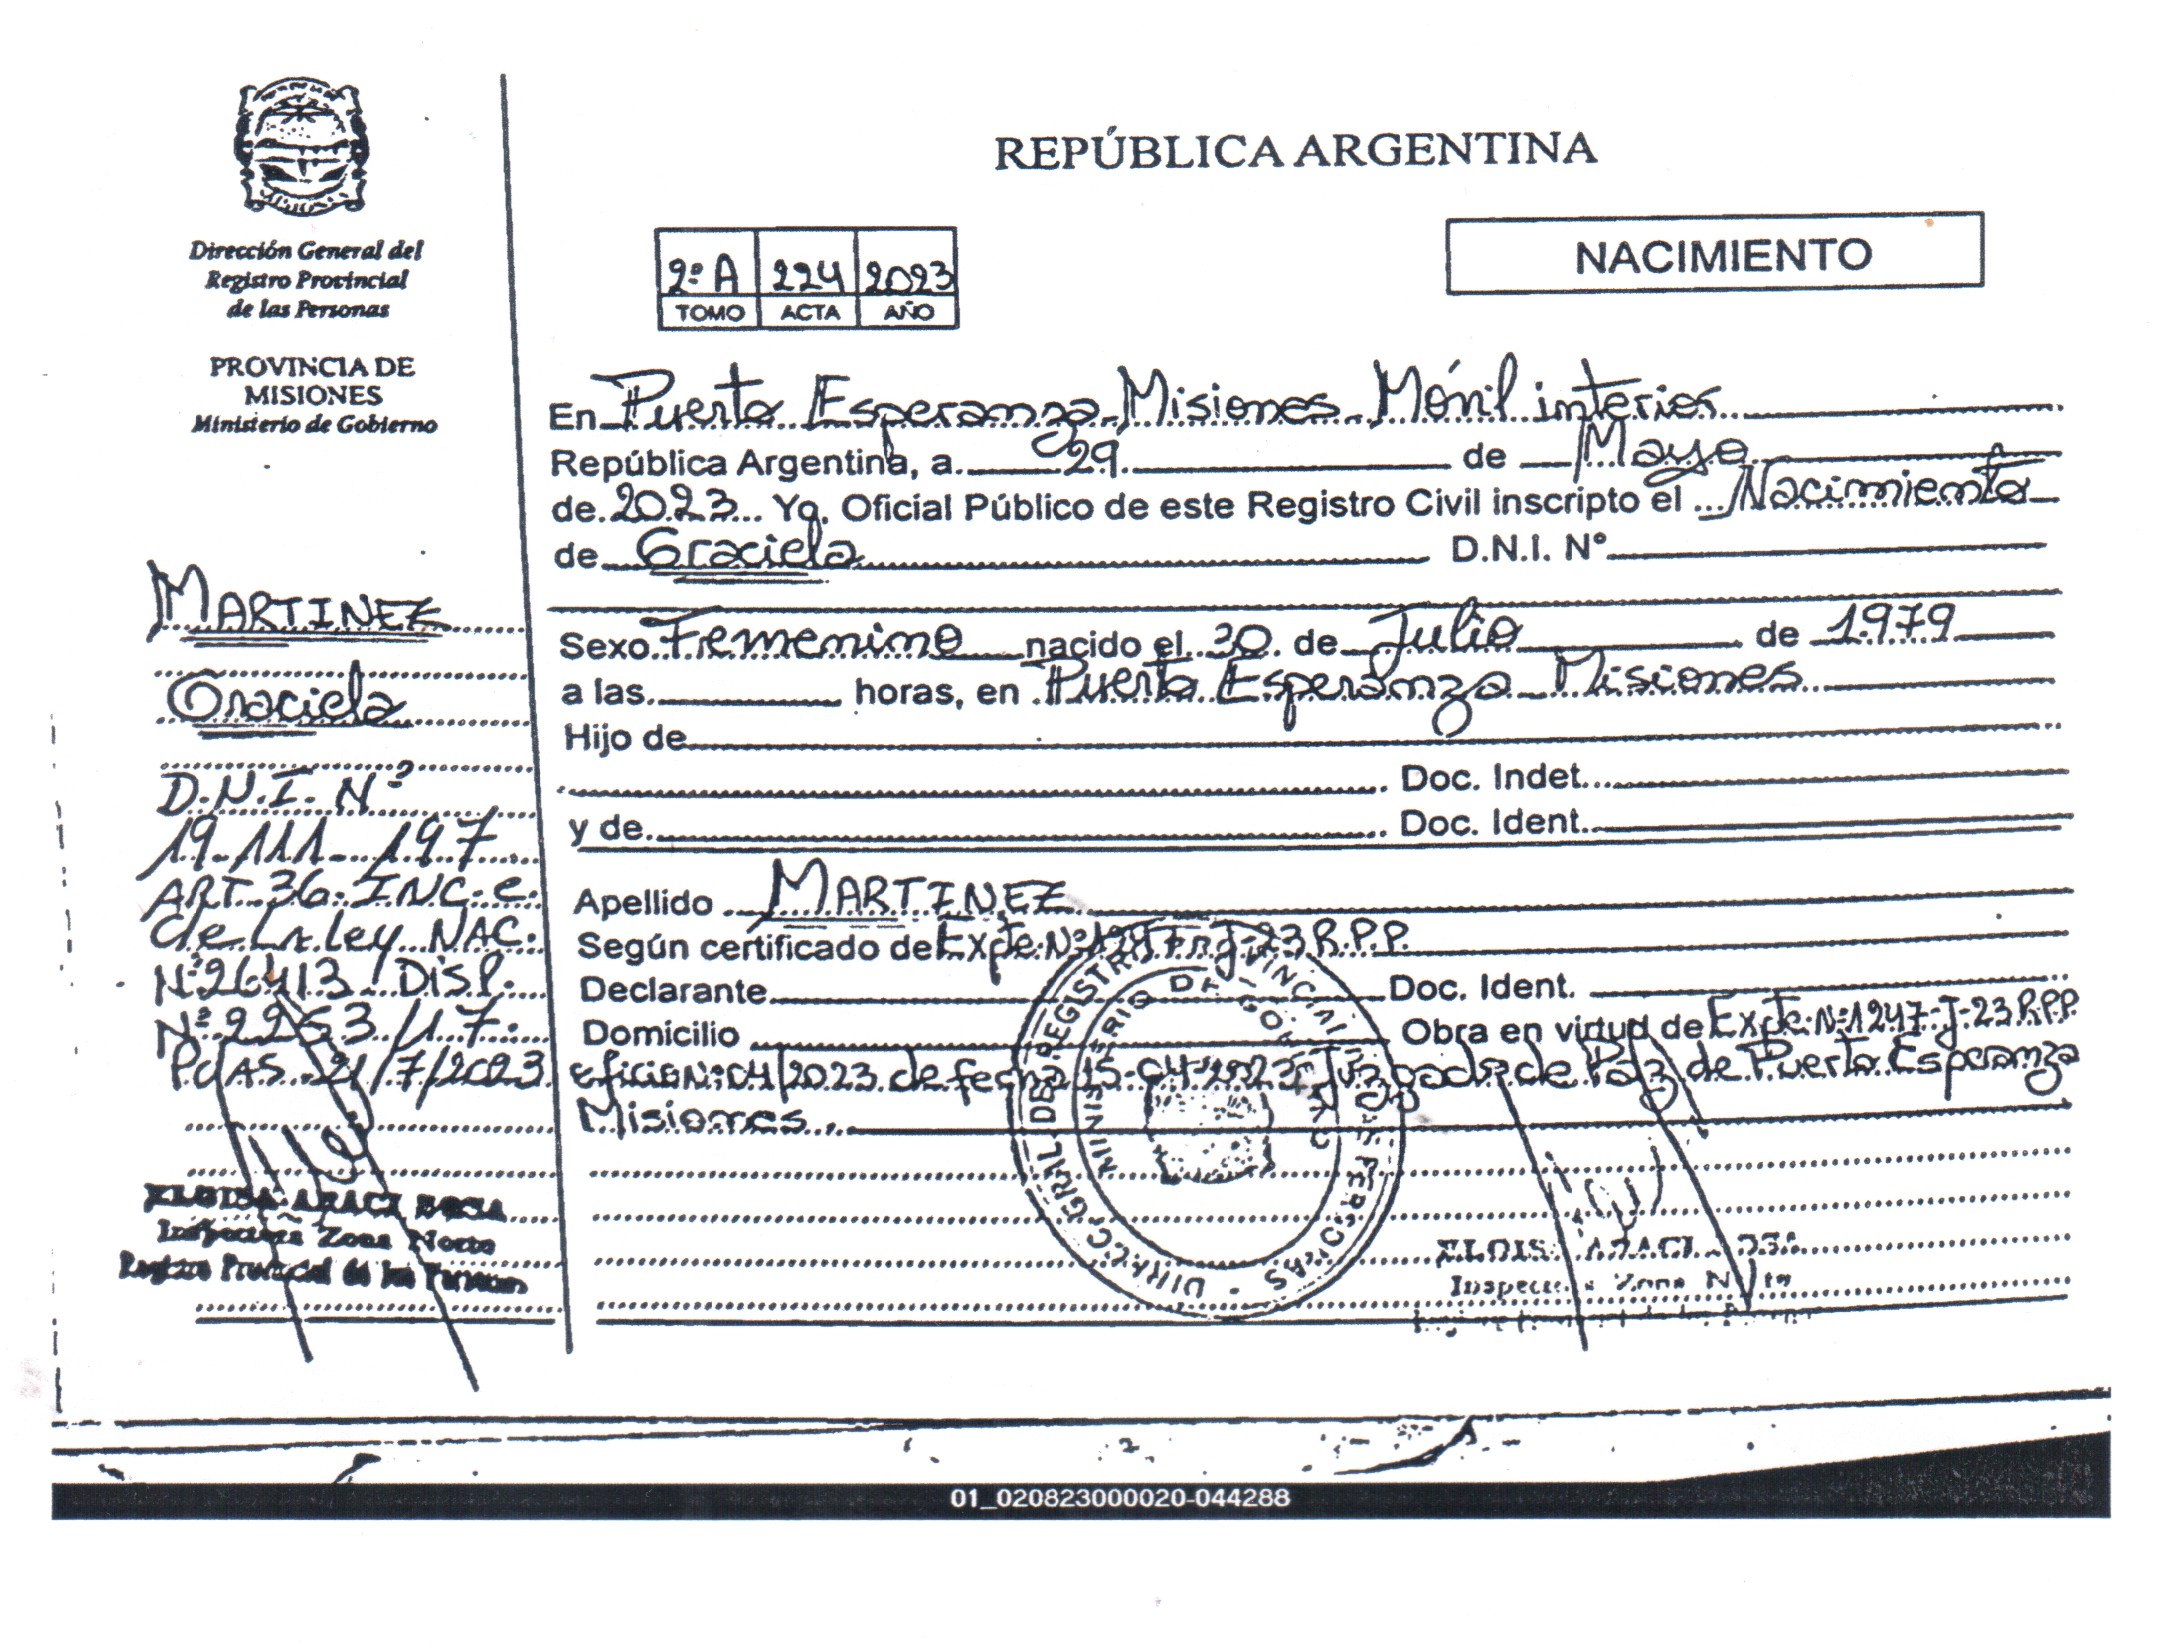 Dirección General del
Registro Provincial
de las Personas
PROVINCIA DE
MISIONES
Ministerio de Gobierno
MARTINEZ
Graciela
D.N.I. Nº
19.111.197
ART. 36. INC. c.
de La ley NAC.
Nº 26413 / DISP.
Nº 2253/17.
PdAS. 21/7/2023
Inspectora Zona Norte
Registro Provincial de las Personas
REPÚBLICA ARGENTINA
NACIMIENTO
2º A 224 2023
TOMO ACTA AÑO
En Puerto Esperanza Misiones Móvil interior
República Argentina, a 29 de Mayo
de 2023 Yo, Oficial Público de este Registro Civil inscripto el Nacimiento
de Graciela D.N.I. Nº
Sexo Femenino nacido el 30 de Julio de 1979
a las horas, en Puerto Esperanza Misiones
Hijo de
Doc. Indet.
y de Doc. Ident.
Apellido MARTINEZ
Según certificado de Expte. Nº J-23 R.P.P.
Declarante Doc. Ident.
Domicilio Obra en virtud de Expte. Nº 1247-J-23 R.P.P
oficio Nº 04/2023 de fecha 15-04-2023 Juzgado de Paz de Puerto Esperanza
Misiones.
DIRECC. GRAL DEL REGISTRO PROVINCIAL DE LAS PERSONAS
MINISTERIO DE GOB
Inspectora Zona Norte
01_020823000020-044288